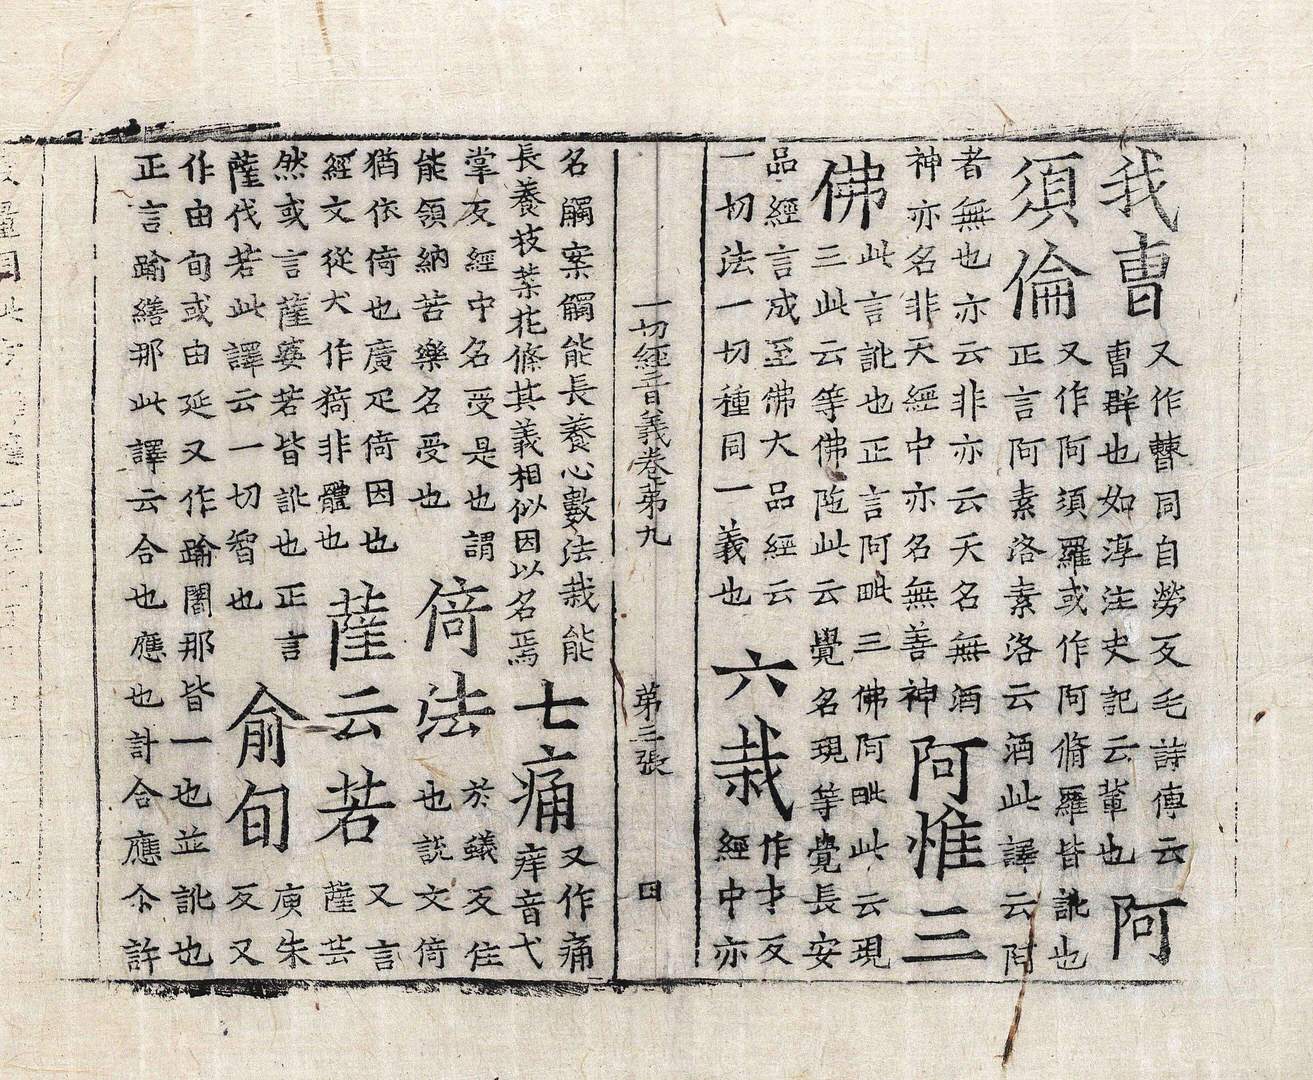 我曹
又作同自勞反毛詩傳云
曹群也如淳注史記云輩也
阿
須倫
又作阿須羅或作阿脩羅皆訛也
正言阿素洛素洛云酒此譯云阿
者無也亦云非亦云天名無酒
神亦名非天經中亦名無善神
阿惟三
佛
此言訛也正言阿毗三佛阿毗此云現
三此云等佛陁此云覺名現等覺長安
品經言成至佛大品經云
一切法一切種同一義也
六栽
作才反
經中亦
一切經音義卷第九 第三張 田
名觸案觸能長養心數法栽能
長養枝葉花條其義相似因以名焉
七痛
又作痛
痒音弋
掌反經中名受是也謂
能領納苦樂名受也
倚法
於蟻反住
也說文倚
猶依倚也廣疋倚因也
經文從犬作猗非體也
薩云若
又言
薩芸
然或言薩婆若皆訛也正言
薩伐若此譯云一切智也
俞旬
庾朱
反又
作由旬或由延又作踰闍那皆一也並訛也
正言踰繕那此譯云合也應也計合應尒許